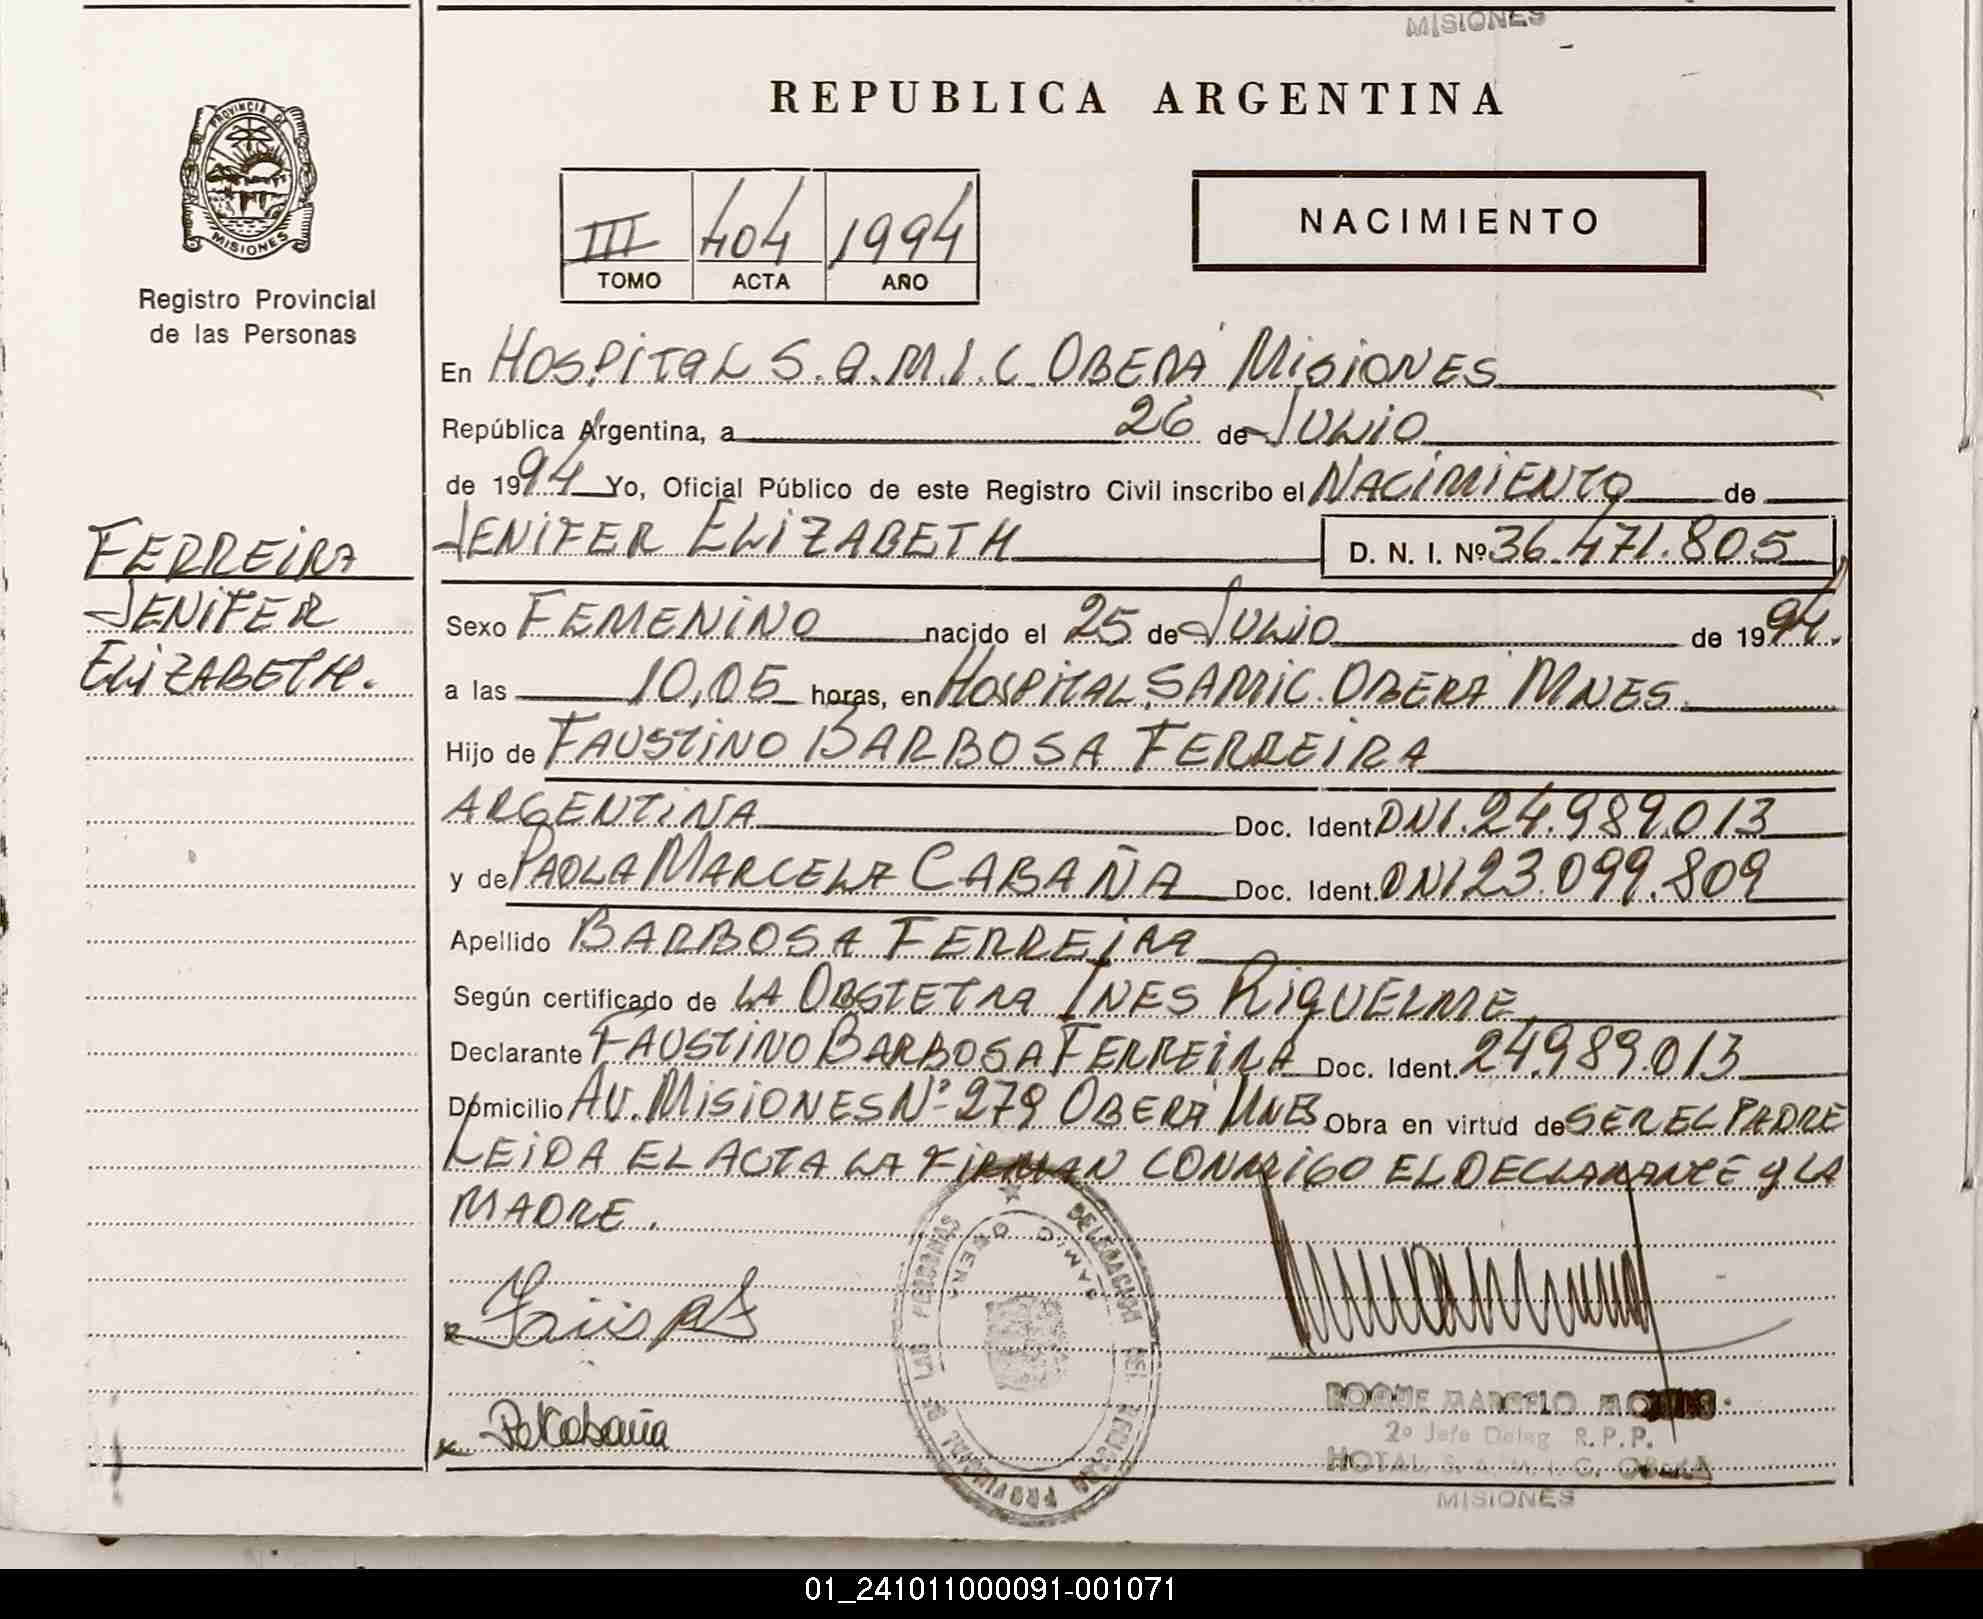 MISIONES
REPUBLICA ARGENTINA
PROVINCIA DE
MISIONES
III 404 1994
TOMO ACTA AÑO
NACIMIENTO
Registro Provincial
de las Personas
En HOSPITAL S.A.M.I.C OBERÁ MISIONES
República Argentina, a 26 de JULIO
de 1994 Yo, Oficial Público de este Registro Civil inscribo el NACIMIENTO de
FERREIRA
JENIFER
ELIZABETH.
JENIFER ELIZABETH D. N. I. Nº 36.471.805
Sexo FEMENINO nacido el 25 de JULIO de 1994.
a las 10,05 horas, en HOSPITAL SAMIC. OBERÁ MNES.
Hijo de FAUSTINO BARBOSA FERREIRA
ARGENTINA Doc. Ident. DNI. 24.989.013
y de PAOLA MARCELA CABAÑA Doc. Ident. DNI 23.099.809
Apellido BARBOSA FERREIRA
Según certificado de LA OBSTETRA INES RIQUELME
Declarante FAUSTINO BARBOSA FERREIRA Doc. Ident. 24.989.013
Domicilio AV. MISIONES Nº 279 OBERÁ MNES Obra en virtud de SER EL PADRE
LEIDA EL ACTA LA FIRMAN CONMIGO EL DECLARANTE Y LA
MADRE.
DELEGACION DEL REGISTRO PROVINCIAL DE LAS PERSONAS
SAMIC OBERA
ROQUE MARCELO
2º Jefe Deleg R.P.P.
HOTAL. S. A. M. I. C. OBERA
MISIONES
01_241011000091-001071